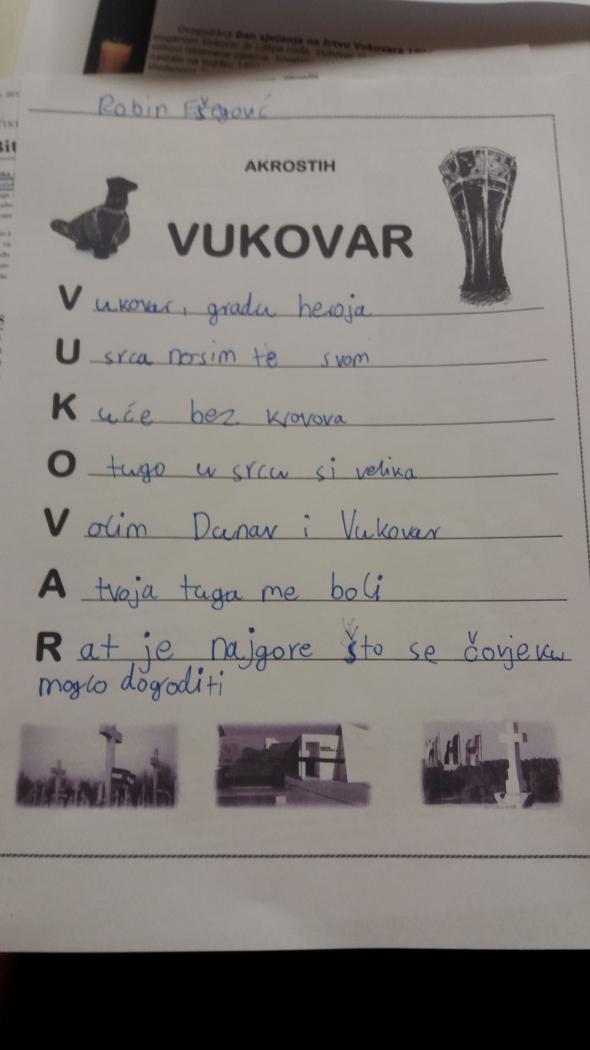 Dan sjećanja na žrtvu Vukovara
Robin
AKROSTIH
VUKOVAR
Vukovar, gradu heroja
U srca nosim te svom
Kuće bez krovova
O tugo u srcu si velika
Volim Dunav i Vukovar
A tvoja tuga me boli
Rat je najgore što se čovjeku
moglo dogoditi